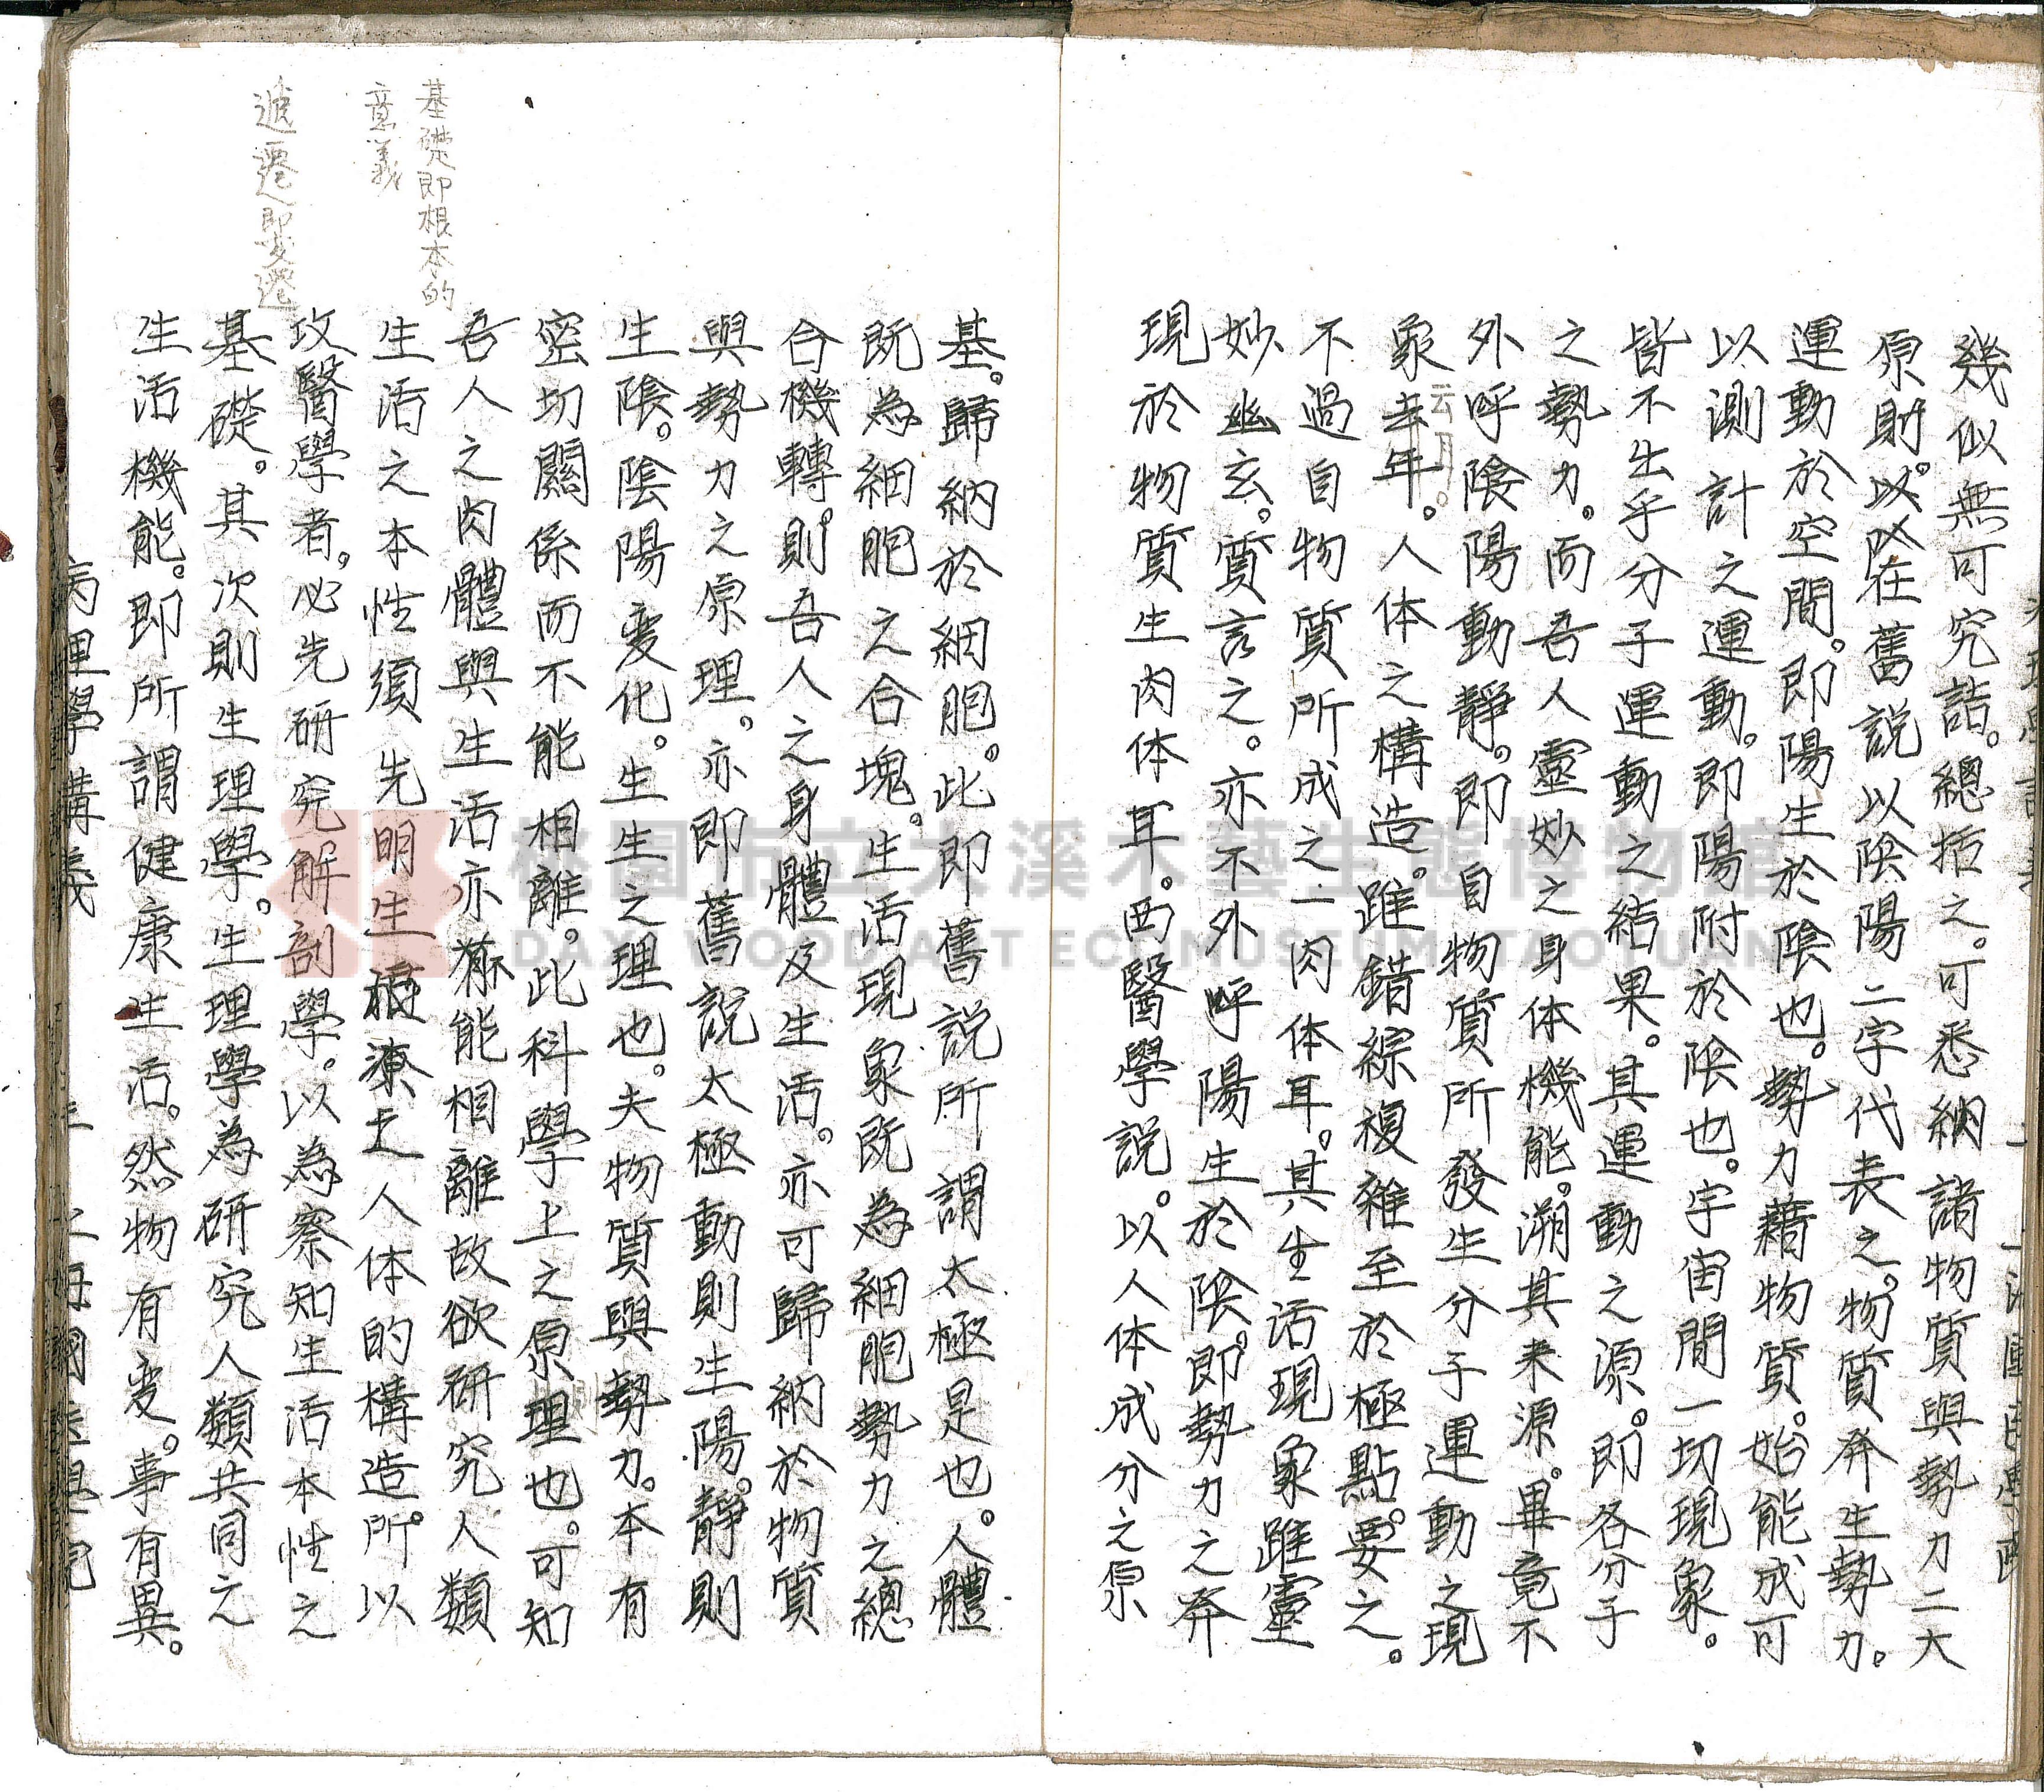 幾似無可究詰。總括之。可悉納諸物質與勢力二大
原則。以在舊說以陰陽二字代表之。物質発生勢力。
運動於空間。即陽生於陰也。勢力藉物質。始能成可
以測計之運動。即陽附於陰也。宇宙間一切現象。
皆不出乎分子運動之結果。其運動之源。即各分子
之勢力。而吾人靈妙之身体機能。溯其来源。畢竟不
外呼陰陽動靜。即自物質所發生分子運動之現
象云耳。人体之構造。雖錯綜複雜至於極點。要之。
不過自物質所成之一肉体耳。其生活現象雖靈
妙幽玄。質言之。亦不外呼陽生於陰。即勢力之発
現於物質生肉体耳。西醫學說。以人体成分之原
基。歸納於細胞。此即舊說所謂太極是也。人體
既為細胞之合塊。生活現象既為細胞勢力之總
合機轉。則吾人之身體及生活。亦可歸納於物質
與勢力之原理。亦即舊說太極動則生陽。靜則
生陰。陰陽变化。生生之理也。夫物質與勢力。本有
密切關係而不能相離。此科學上之原理也。可知
吾人之肉體與生活亦不能相離故欲研究人類
生活之本性須先明生活人体的構造。所以
攻醫學者。必先研究解剖學。以為察知生活本性之
基礎。其次則生理學。生理學為研究人類共同之
生活機能。即所謂健康生活。然物有变。事有異。
基礎即根本的
意義
遞遷即變遷
病理學講義
桃園市立大溪木藝生態博物館
DAXI WOOD ART ECOMUSEUM, TAOYUAN